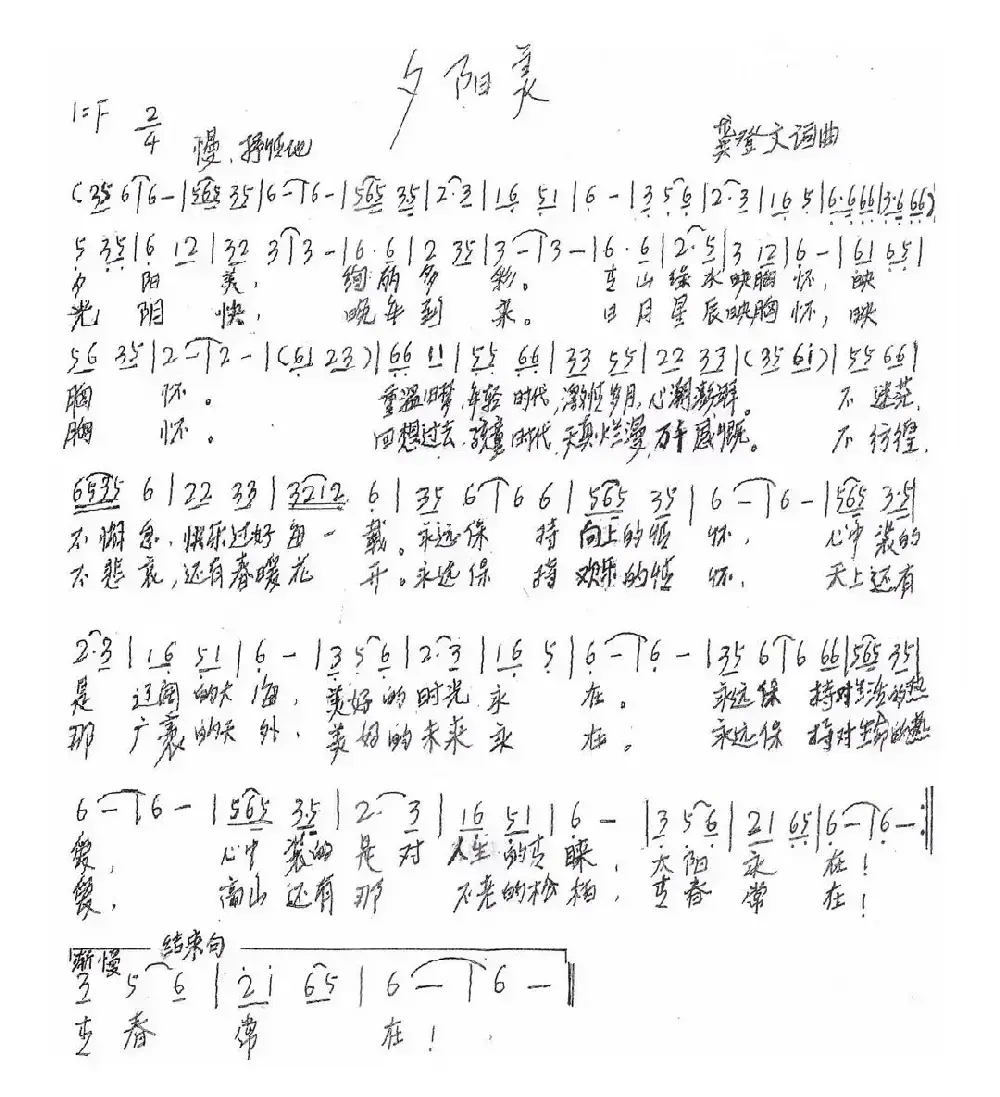 夕阳美
1=F 2/4 慢、抒情地 龚登文词曲
(35 6|6-|565 35|6-|6-|565 35|2·3|16 51|6-|3 56|2·3|16 5|6·666|3·666)
5 35|6 12|32 3|3-|6·6|2 35|3-|3-|6·6|2·5|3 12|6-|61 65|
夕阳美，绚丽多彩。青山绿水映胸怀，映
光阴快，晚年到来。日月星辰映胸怀，映
56 35|2-|2-|(61 23)|66 11|55 66|33 55|22 33|(35 61)|55 66|
胸怀。重温旧梦，年轻时代，激情岁月，心潮澎湃。不迷茫，
胸怀。回想过去，孩童时代，天真烂漫，万千感慨。不彷徨，
6535 6|22 33|3212 6|35 6|6 6|565 35|6-|6-|565 3·5|
不懈怠，快乐过好每一载。永远保持向上的情怀，心中装的
不悲哀，还有春暖花开。永远保持欢乐的情怀，天上还有
2·3|16 51|6-|3 56|2·3|16 5|6-|6-|35 6|6 66|565 35|
是辽阔的大海，美好的时光永在。永远保持对生活的热
那广袤的天外，美好的未来永在。永远保持对生命的热
6-|6-|565 3·5|2·3|16 51|6-|3 56|21 65|6-|6-:‖
爱，心中装的是对人生的青睐，太阳永在！
爱，高山还有那不老的松柏，青春常在！
渐慢 结束句
3 5 6|2i 65|6-|6-‖
青春常在！